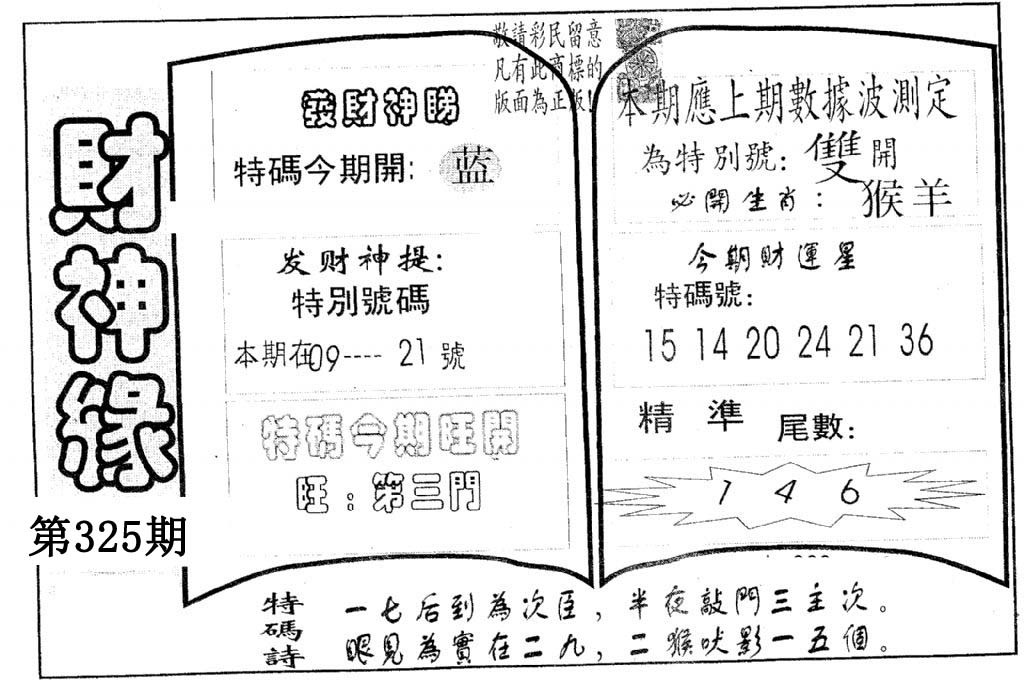 財神緣
第325期
敬請彩民留意
凡有此商標的
版面為正版!
發財神睇
特碼今期開: 蓝
发财神提:
特別號碼
本期在09---- 21 號
特碼今期旺開
旺:第三門
本期應上期數據波測定
為特別號: 雙開
必開生肖: 猴羊
今期財運星
特碼號:
15 14 20 24 21 36
精準 尾數:
1 4 6
特碼詩
一七后到為次臣,半夜敲門三主次。
眼見為實在二九,二猴吠影一五個。